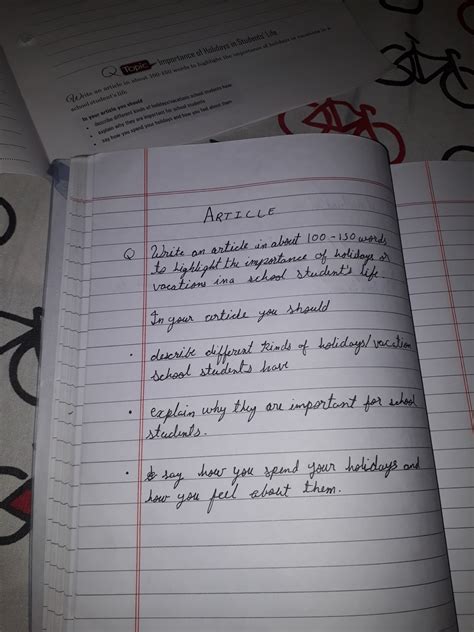 Q Topic Importance of Holidays in Students' Life
Write an article in about 100-150 words to highlight the importance of holidays or vacations in a
school student's life.
In your article you should
• describe different kinds of holidays/vacations school students have
• explain why they are important for school students
• say how you spend your holidays and how you feel about them
ARTICLE
Q Write an article in about 100-150 words
to highlight the importance of holidays or
vacations in a school student's life.
In your article you should
• describe different kinds of holidays/vacation
school students have
• explain why they are important for school
students.
• say how you spend your holidays and
how you feel about them.